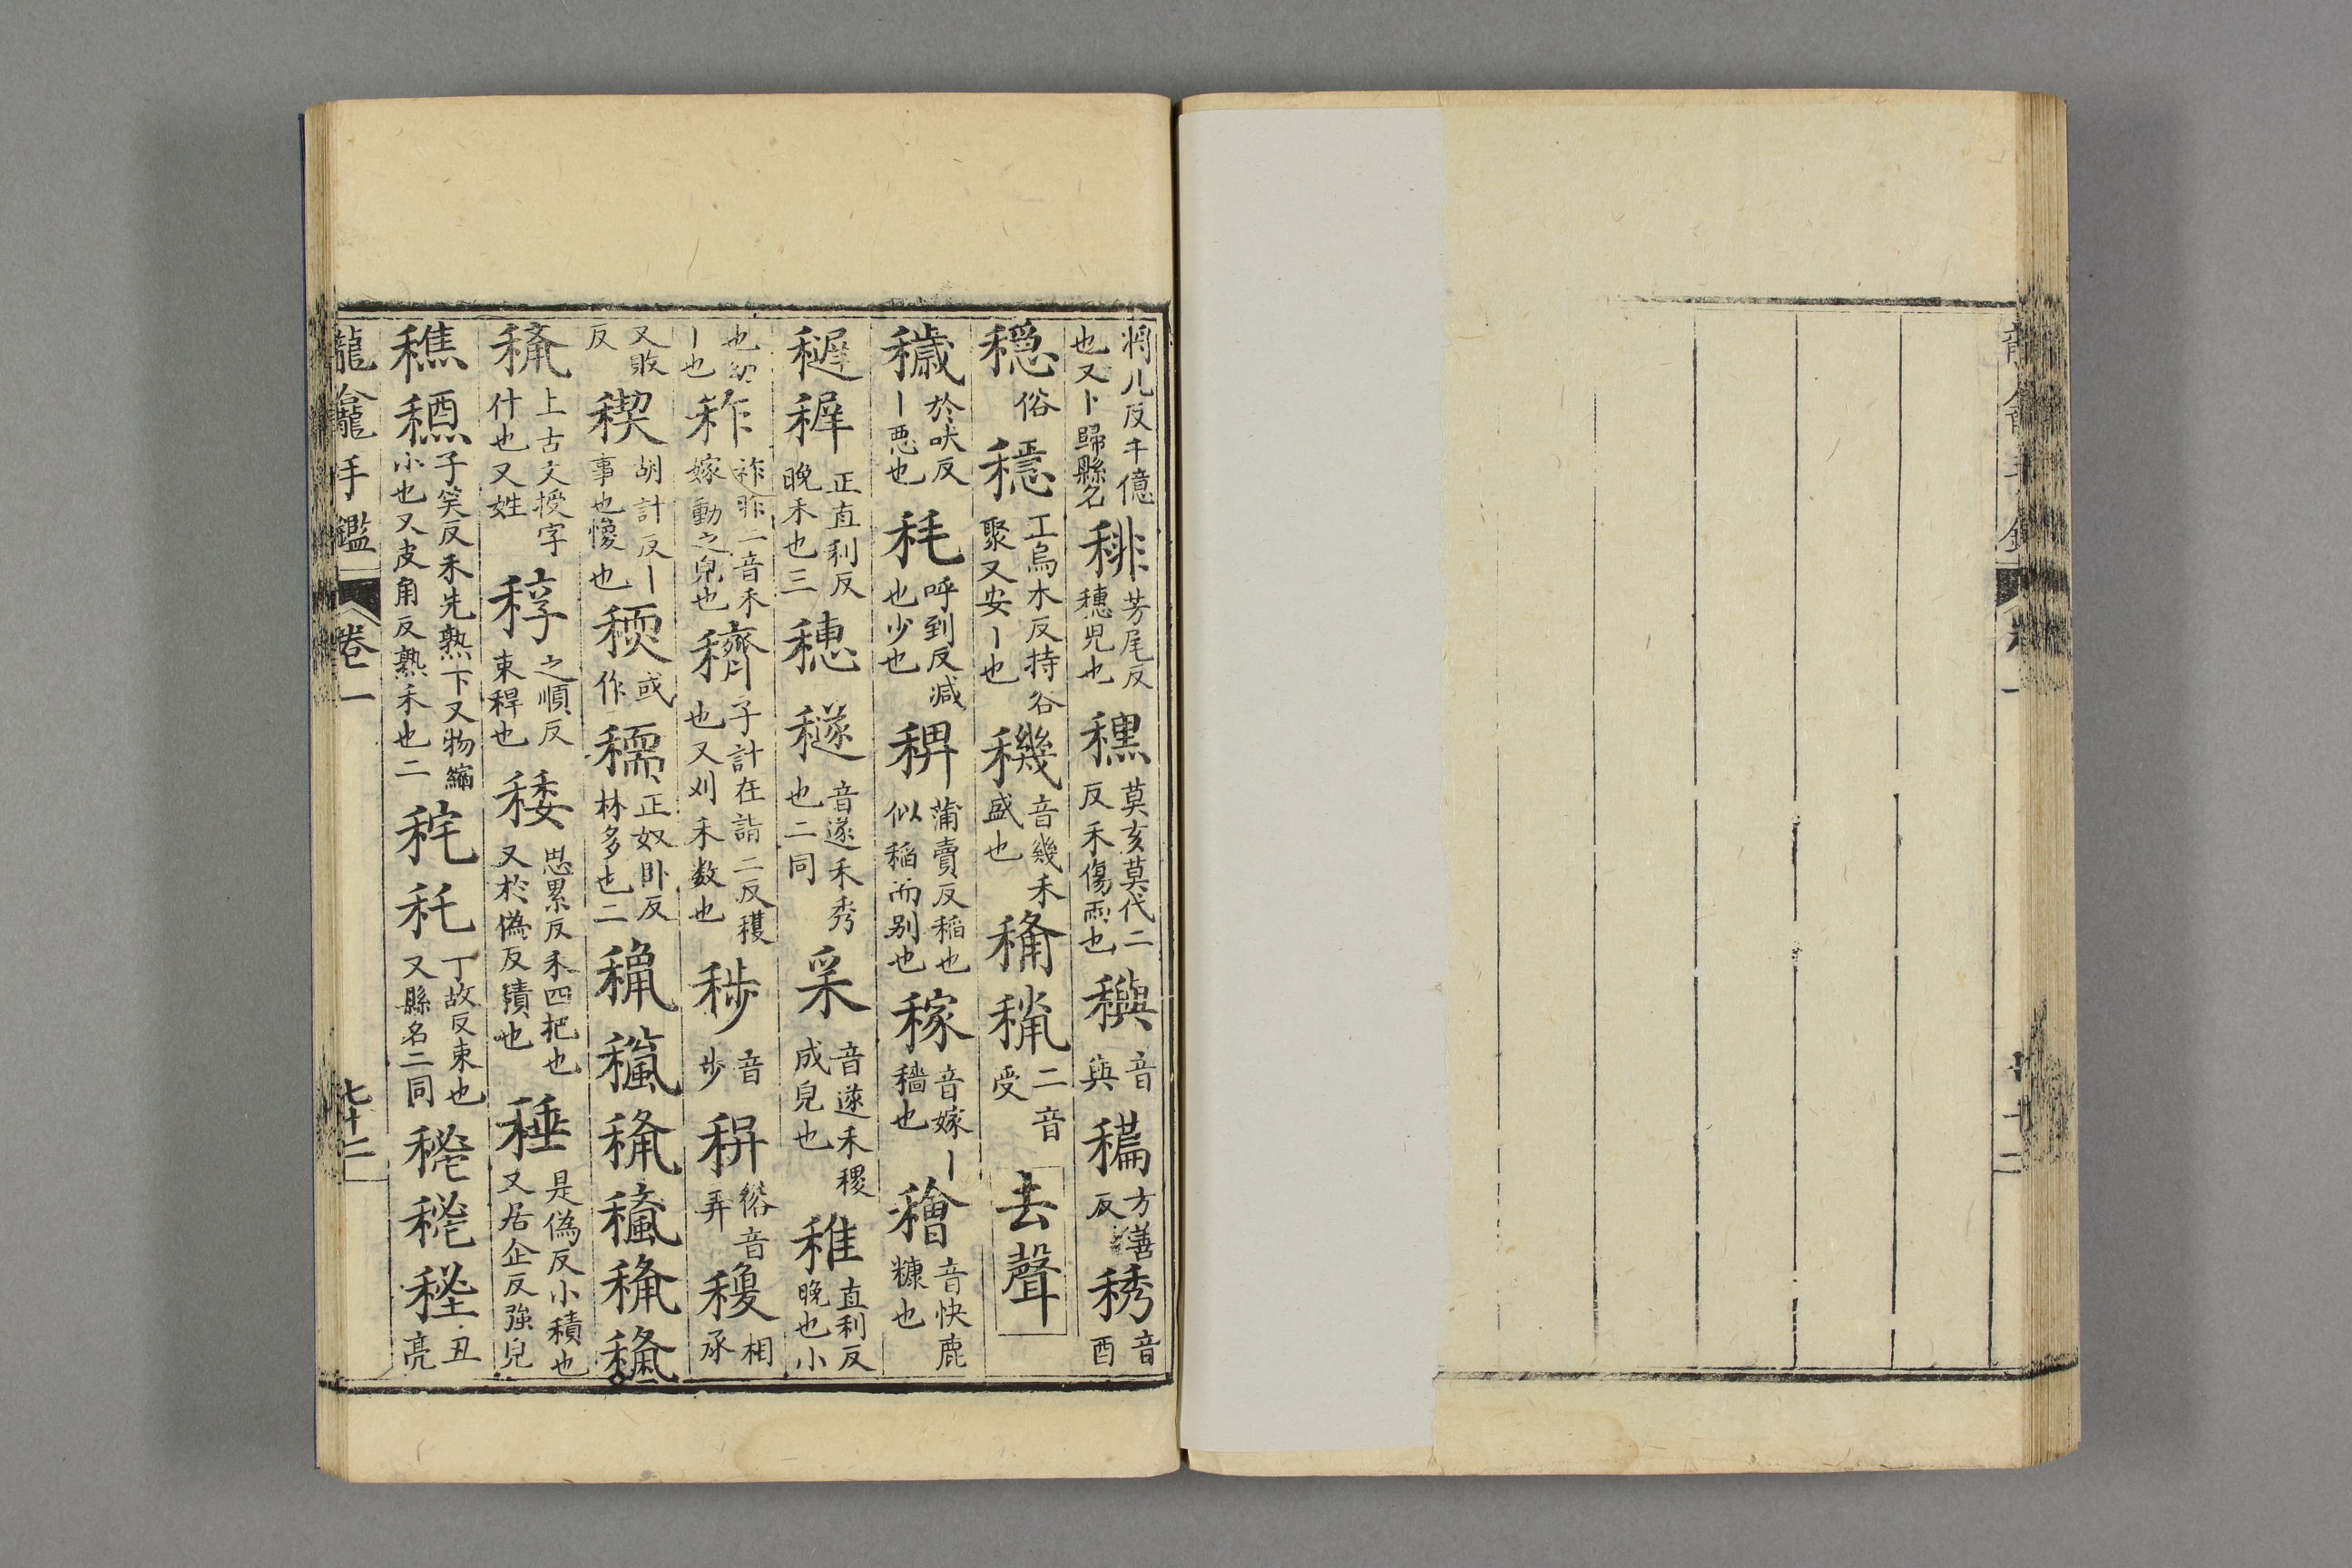 将几反千億也又卜歸縣名䆏芳尾反穗皃也䵢莫亥莫代二反禾傷雨也穥音與稨方善反秀音酉
穏俗穩正烏本反持谷聚又安丨也穖音幾禾盛也二音受去聲
穢於吠反丨惡也秏呼到反減也少也稗蒲賣反稻也似稻而別也稼音嫁丨穡也穭音快鹿糠也
稺正直利反晚禾也三穗穟音遂禾秀也二同采音遂禾稷成皃也稚直利反晚也小
也幼丨也秨祚昨二音禾嫁動之皃也穧子計在詣二反穫也又刈禾数也䄺音步俗音弄相承
又敗反稧胡計反丨事也懱也稬或作穤正奴卧反林多也二
上古文授字什也又姓稕之順反束稈也䅑思累反禾四把也又於偽反積也䅜是偽反小積也又居企反強皃
穛子笑反禾先熟下又物縮小也又皮角反熟禾也二秺秅丁故反束也又縣名二同丑亮
龍龕手鑑 卷一 七十二